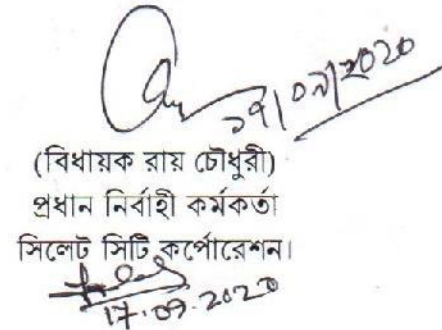 ১৭/০৯/২০২০
(বিধায়ক রায় চৌধুরী)
প্রধান নির্বাহী কর্মকর্তা
সিলেট সিটি কর্পোরেশন।
17.09.2020